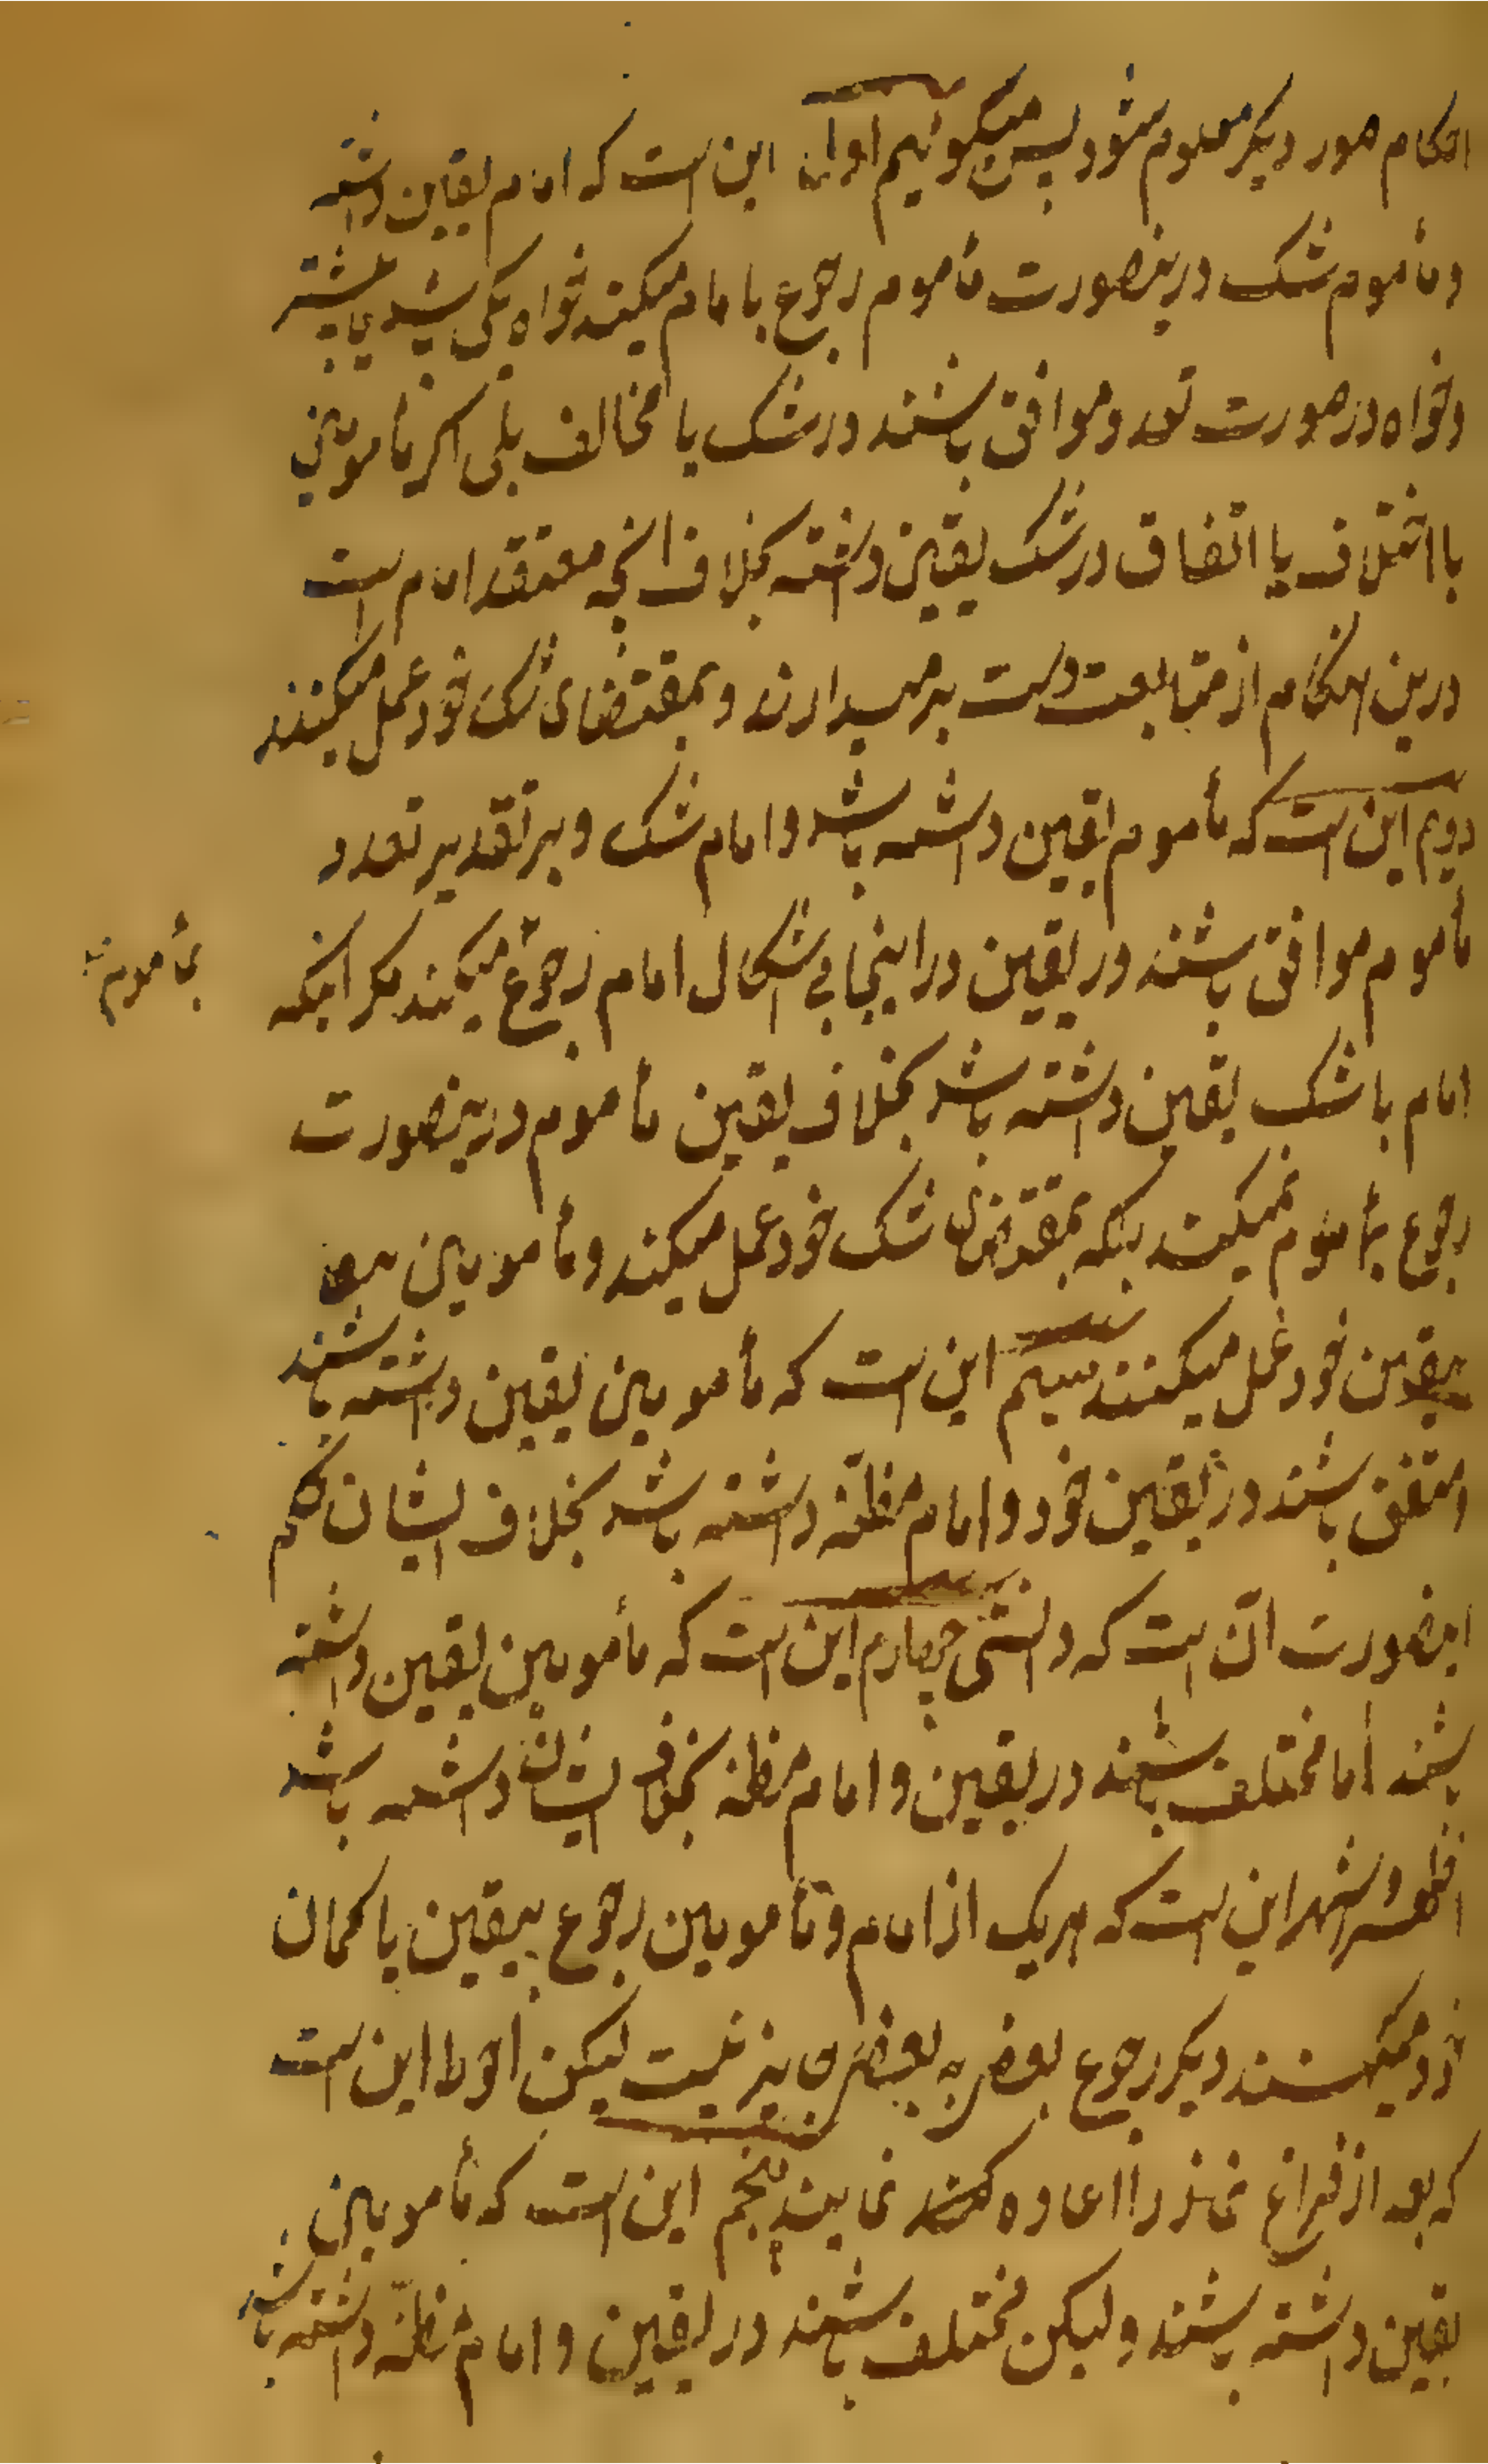 احکام صور دیگر معلوم شود پس میگوئیم اول این است که امام یقین داشته
و مأموم شک درینصورت مأموم رجوع بامام میکند خواه یکی باشد یا بیشتر
و خواه در صورت تعدد موافق باشند در شک یا مخالف بلی اگر مأمومین
با اختلاف یا اتفاق در شک یقین داشته بخلاف انچه معتقد امام است
درین هنگام از متابعت دست برمیدارند و بمقتضای شک خود عمل میکنند
دویم این است که مأموم یقین داشته باشد و امام شک و بر تقدیر تعدد
مأموم موافق باشند در یقین در اینجا بی اشکال امام رجوع میکند مگر اینکه
بمأموم
امام با شک یقین داشته باشد بخلاف یقین مأموم درینصورت
رجوع بمأموم نمیکند بلکه بمقتضای شک خود عمل میکند و مأمومین
بیقین خود عمل میکنند سیم این است که مأمومین یقین داشته باشند
و متفق باشند در یقین خود و امام مظنّه داشته باشد بخلاف ایشان حکم
اینصورت آن است که دانستی چهارم این است که مأمومین یقین داشته
باشند اما مختلف باشند در یقین و امام مظنه بخلاف ایشان داشته باشد
اظهر و اشهر این است که هریک از امام و مأمومین رجوع بیقین یا گمان
خود میکنند دیگر رجوع بعض به بعضی جایز نیست لیکن احوط این است
که بعد از فراغ نماز را اعاده نمایند پنجم این است که مأمومین
یقین داشته باشند و لیکن مختلف باشند در یقین و امام مظنّه داشته باشد